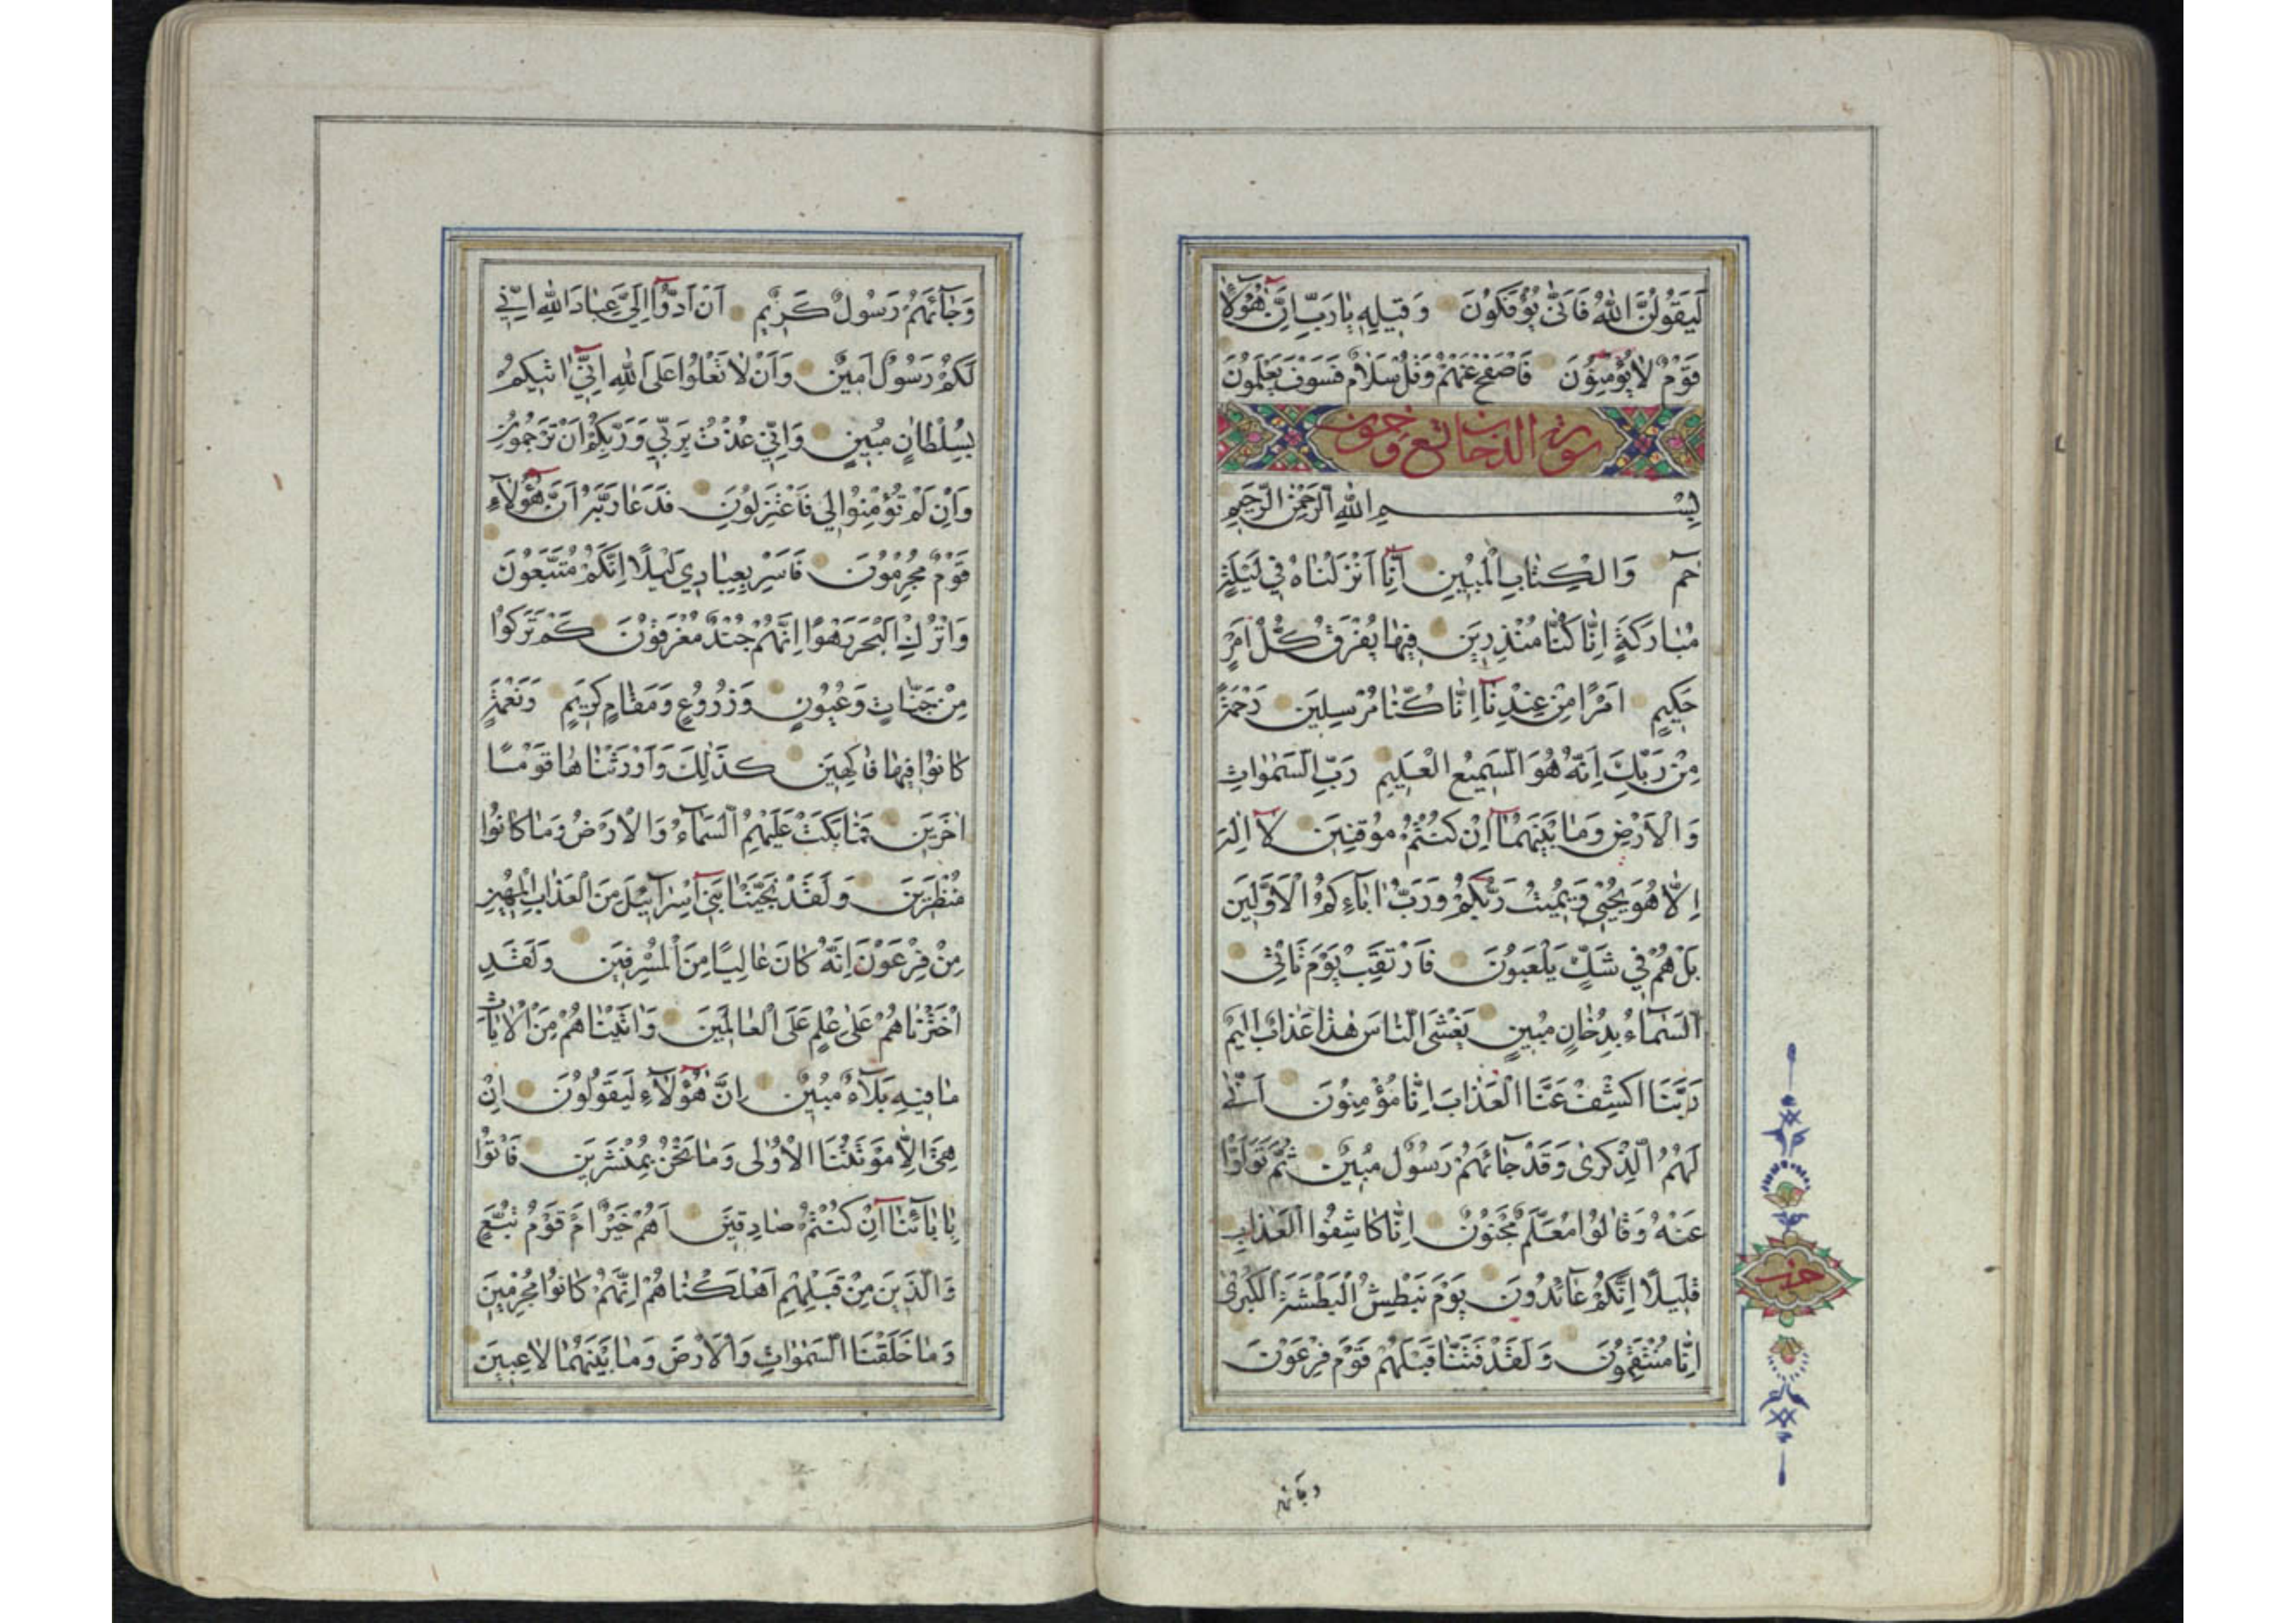 لَيَقُولُنَّ اللهُ فَاَنّٰى يُؤْفَكُونَ وَقِيلِهٖ يَا رَبِّ اِنَّ هٰٓؤُلَاۤءِ
قَوْمٌ لَا يُؤْمِنُونَ فَاصْفَحْ عَنْهُمْ وَقُلْ سَلَامٌ فَسَوْفَ يَعْلَمُونَ
سورة الدخان تسع وخمسون
بِسْمِ اللهِ الرَّحْمٰنِ الرَّحِيمِ
حٰمٓ وَالْكِتَابِ الْمُبِينِ اِنَّآ اَنْزَلْنَاهُ فِي لَيْلَةٍ
مُبَارَكَةٍ اِنَّا كُنَّا مُنْذِرِينَ فِيهَا يُفْرَقُ كُلُّ اَمْرٍ
حَكِيمٍ اَمْرًا مِنْ عِنْدِنَآ اِنَّا كُنَّا مُرْسِلِينَ رَحْمَةً
مِنْ رَبِّكَ اِنَّهُ هُوَ السَّمِيعُ الْعَلِيمُ رَبِّ السَّمٰوَاتِ
وَالْاَرْضِ وَمَا بَيْنَهُمَآ اِنْ كُنْتُمْ مُوقِنِينَ لَآ اِلٰهَ
اِلَّا هُوَ يُحْيِي وَيُمِيتُ رَبُّكُمْ وَرَبُّ اٰبَآءِكُمُ الْاَوَّلِينَ
بَلْ هُمْ فِي شَكٍّ يَلْعَبُونَ فَارْتَقِبْ يَوْمَ تَاْتِي
السَّمَآءُ بِدُخَانٍ مُبِينٍ يَغْشَى النَّاسَ هٰذَا عَذَابٌ اَلِيمٌ
رَبَّنَا اكْشِفْ عَنَّا الْعَذَابَ اِنَّا مُؤْمِنُونَ اَنّٰى
لَهُمُ الذِّكْرٰى وَقَدْ جَآئَهُمْ رَسُولٌ مُبِينٌ ثُمَّ تَوَلَّوْا
عَنْهُ وَقَالُوا مُعَلَّمٌ مَجْنُونٌ اِنَّا كَاشِفُوا الْعَذَابِ
قَلِيلًا اِنَّكُمْ عَآئِدُونَ يَوْمَ نَبْطِشُ الْبَطْشَةَ الْكُبْرٰى
اِنَّا مُنْتَقِمُونَ وَلَقَدْ فَتَنَّا قَبْلَهُمْ قَوْمَ فِرْعَوْنَ
حزب
وجائهم
وَجَآئَهُمْ رَسُولٌ كَرِيمٌ اَنْ اَدُّوٓا اِلَيَّ عِبَادَ اللهِ اِنِّي
لَكُمْ رَسُولٌ اَمِينٌ وَاَنْ لَا تَعْلُوا عَلَى اللهِ اِنِّيٓ اٰتِيكُمْ
بِسُلْطَانٍ مُبِينٍ وَاِنِّي عُذْتُ بِرَبِّي وَرَبِّكُمْ اَنْ تَرْجُمُونِ
وَاِنْ لَمْ تُؤْمِنُوا لِي فَاعْتَزِلُونِ فَدَعَا رَبَّهُ اَنَّ هٰٓؤُلَآءِ
قَوْمٌ مُجْرِمُونَ فَاَسْرِ بِعِبَادِي لَيْلًا اِنَّكُمْ مُتَّبَعُونَ
وَاتْرُكِ الْبَحْرَ رَهْوًا اِنَّهُمْ جُنْدٌ مُغْرَقُونَ كَمْ تَرَكُوا
مِنْ جَنَّاتٍ وَعُيُونٍ وَزُرُوعٍ وَمَقَامٍ كَرِيمٍ وَنَعْمَةٍ
كَانُوا فِيهَا فَاكِهِينَ كَذٰلِكَ وَاَوْرَثْنَاهَا قَوْمًا
اٰخَرِينَ فَمَا بَكَتْ عَلَيْهِمُ السَّمَآءُ وَالْاَرْضُ وَمَا كَانُوا
مُنْظَرِينَ وَلَقَدْ نَجَّيْنَا بَنِيٓ اِسْرَآئِيلَ مِنَ الْعَذَابِ الْمُهِينِ
مِنْ فِرْعَوْنَ اِنَّهُ كَانَ عَالِيًا مِنَ الْمُسْرِفِينَ وَلَقَدِ
اخْتَرْنَاهُمْ عَلٰى عِلْمٍ عَلَى الْعَالَمِينَ وَاٰتَيْنَاهُمْ مِنَ الْاٰيَاتِ
مَا فِيهِ بَلَآءٌ مُبِينٌ اِنَّ هٰٓؤُلَآءِ لَيَقُولُونَ اِنْ
هِيَ اِلَّا مَوْتَتُنَا الْاُولٰى وَمَا نَحْنُ بِمُنْشَرِينَ فَاْتُوا
بِاٰبَآئِنَآ اِنْ كُنْتُمْ صَادِقِينَ اَهُمْ خَيْرٌ اَمْ قَوْمُ تُبَّعٍ
وَالَّذِينَ مِنْ قَبْلِهِمْ اَهْلَكْنَاهُمْ اِنَّهُمْ كَانُوا مُجْرِمِينَ
وَمَا خَلَقْنَا السَّمٰوَاتِ وَالْاَرْضَ وَمَا بَيْنَهُمَا لَاعِبِينَ